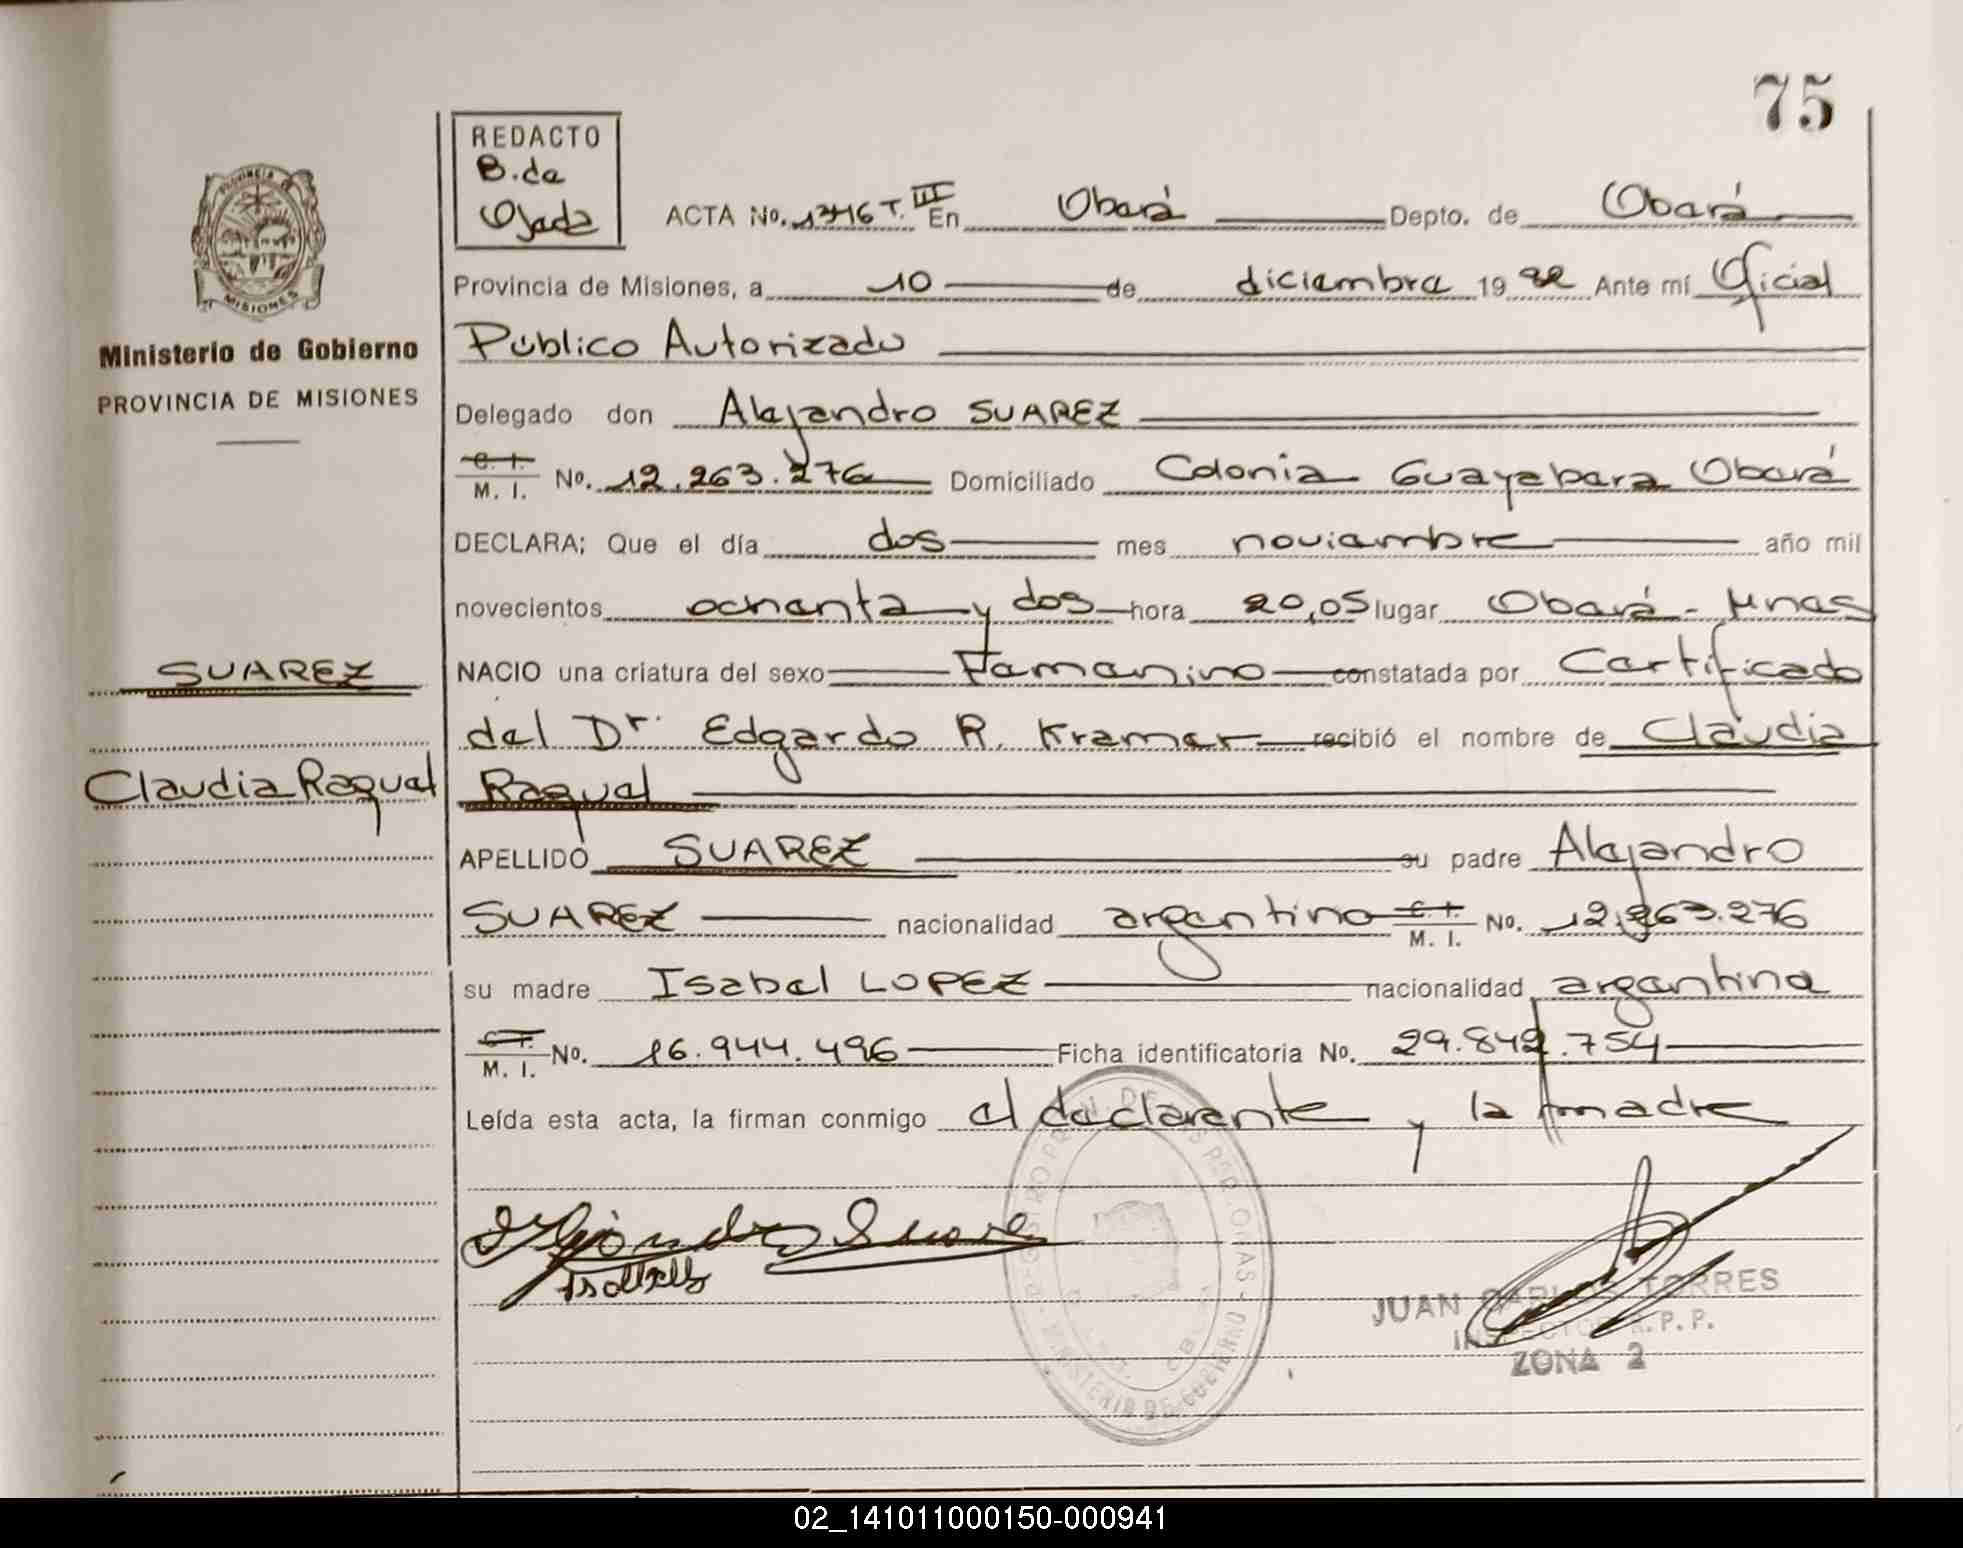 75
REDACTO
B. de
Ojeda
ACTA No. 1746 T. III En Oberá Depto. de Oberá
Provincia de Misiones, a 10 de diciembre 19 82 Ante mí Oficial
Público Autorizado
Delegado don Alejandro SUAREZ
C. I. M. I. No. 12.263.276 Domiciliado Colonia Guayabera Oberá
DECLARA; Que el día dos mes noviembre año mil
novecientos ochenta y dos hora 20,05 lugar Oberá - Mnes
NACIO una criatura del sexo Femenino constatada por Certificado
del Dr. Edgardo R. Kramer recibió el nombre de Claudia
Raquel
APELLIDO SUAREZ su padre Alejandro
SUAREZ nacionalidad argentino C. I. M. I. No. 12.263.276
su madre Isabel LOPEZ nacionalidad argentina
C. I. M. I. No. 16.944.496 Ficha identificatoria No. 29.842.754
Leída esta acta, la firman conmigo el declarante y la madre
PROVINCIA DE
MISIONES
Ministerio de Gobierno
PROVINCIA DE MISIONES
SUAREZ
Claudia Raquel
JUAN CARLOS TORRES
INSPECTOR R. P. P.
ZONA 2
MINISTERIO DE GOBIERNO
02_141011000150-000941